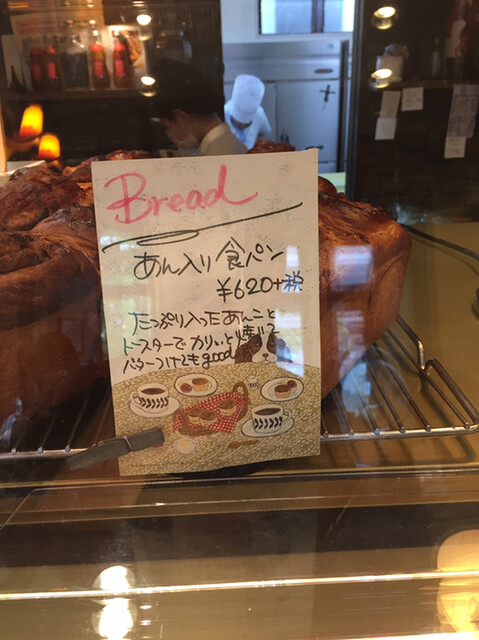 Bread
あん入り食パン
¥620+税
たっぷり入ったあんこと
トースターでカリッと焼いて
バターつけてもgood